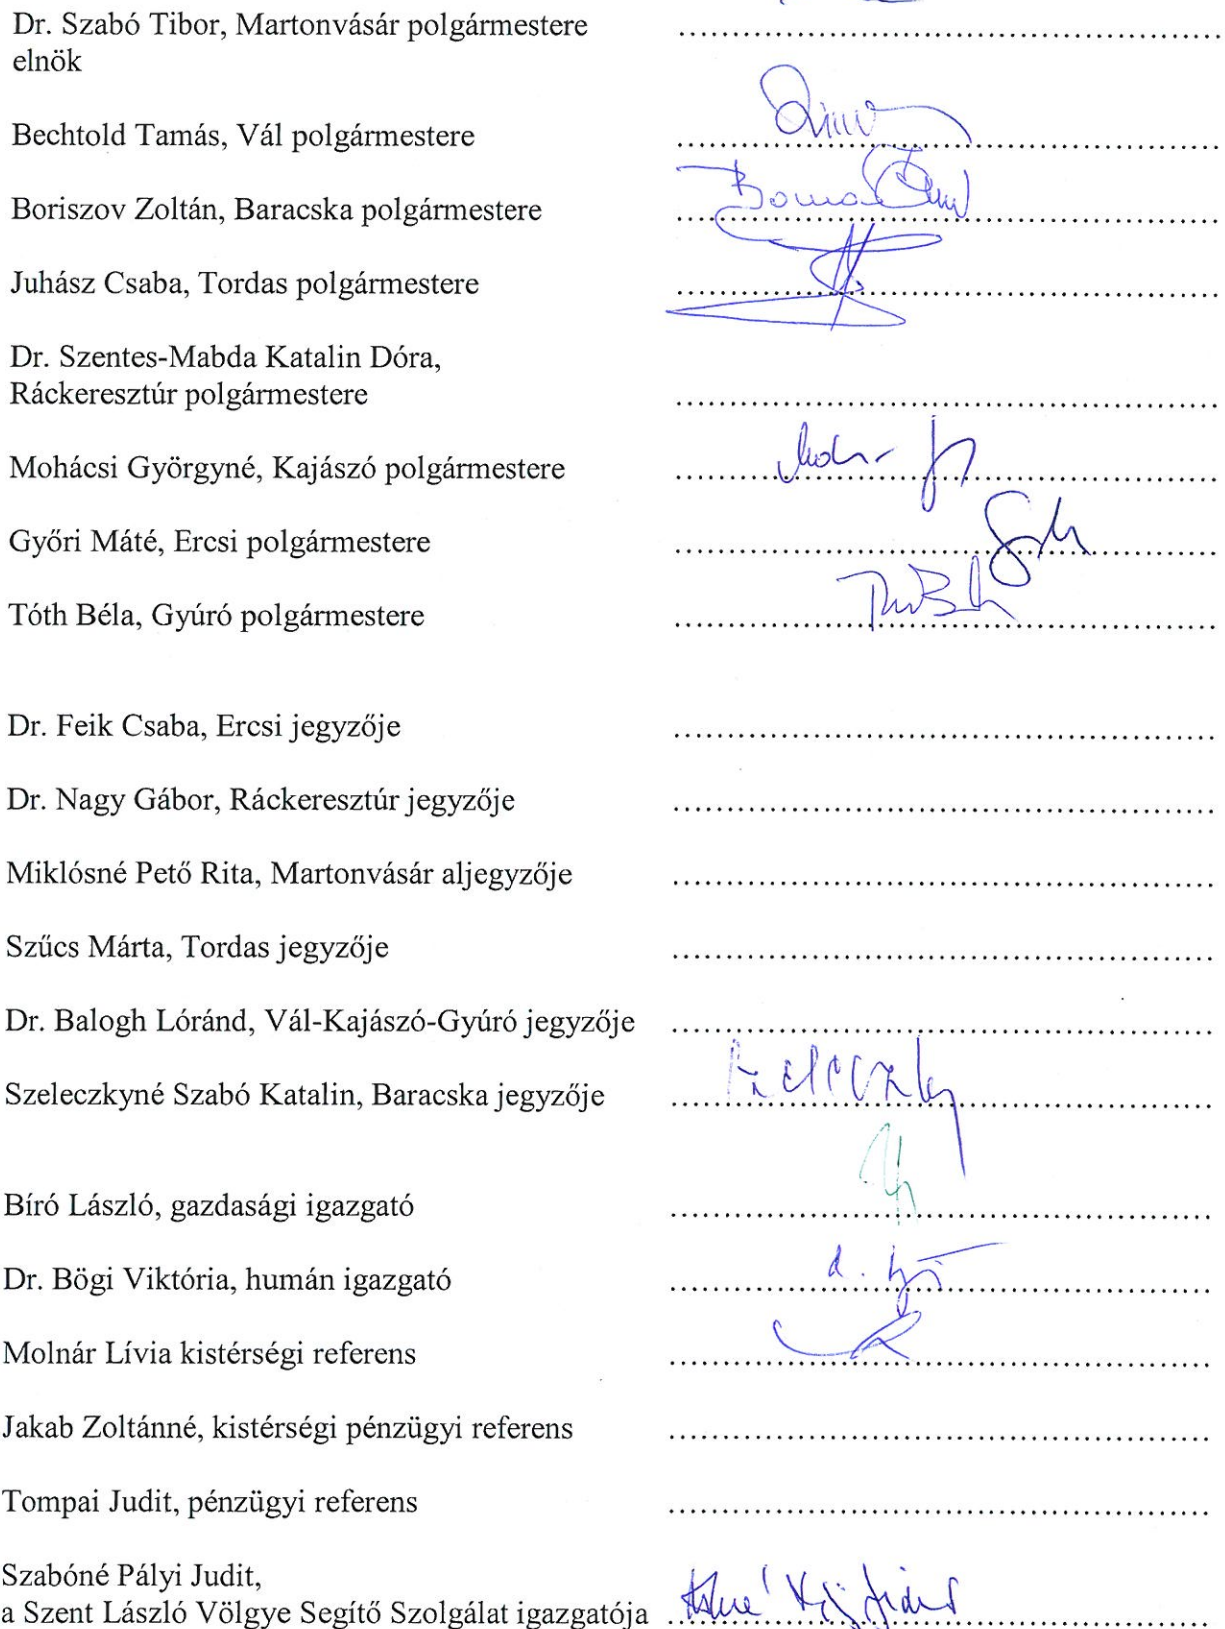 Dr. Szabó Tibor, Martonvásár polgármestere ....................
elnök
Bechtold Tamás, Vál polgármestere ....................
Boriszov Zoltán, Baracska polgármestere ....................
Juhász Csaba, Tordas polgármestere ....................
Dr. Szentes-Mabda Katalin Dóra,
Ráckeresztúr polgármestere ....................
Mohácsi Györgyné, Kajászó polgármestere ....................
Győri Máté, Ercsi polgármestere ....................
Tóth Béla, Gyúró polgármestere ....................
Dr. Feik Csaba, Ercsi jegyzője ....................
Dr. Nagy Gábor, Ráckeresztúr jegyzője ....................
Miklósné Pető Rita, Martonvásár aljegyzője ....................
Szűcs Márta, Tordas jegyzője ....................
Dr. Balogh Lóránd, Vál-Kajászó-Gyúró jegyzője ....................
Szeleczkyné Szabó Katalin, Baracska jegyzője ....................
Bíró László, gazdasági igazgató ....................
Dr. Bögi Viktória, humán igazgató ....................
Molnár Lívia kistérségi referens ....................
Jakab Zoltánné, kistérségi pénzügyi referens ....................
Tompai Judit, pénzügyi referens ....................
Szabóné Pályi Judit,
a Szent László Völgye Segítő Szolgálat igazgatója ....................